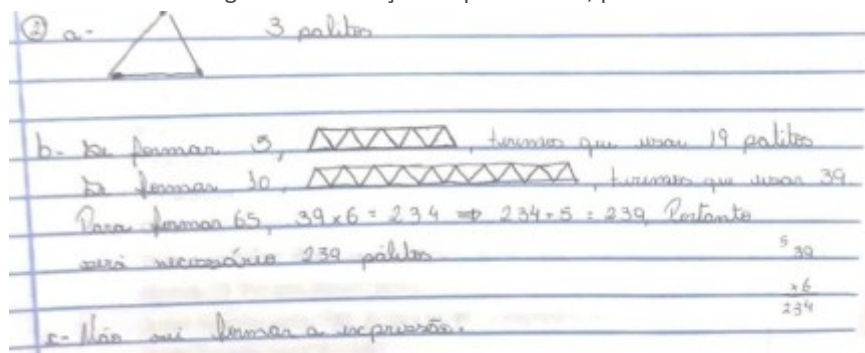 ② a- 3 palitos
b- Se formar 5, , teremos que usar 19 palitos
Se formar 10, , teremos que usar 39
Para formar 65, 39 x 6 = 234 ⇒ 234 + 5 = 239 Portanto
será necessário 239 pálitos
5
39
x6
234
c- Não sei formar a expressão.